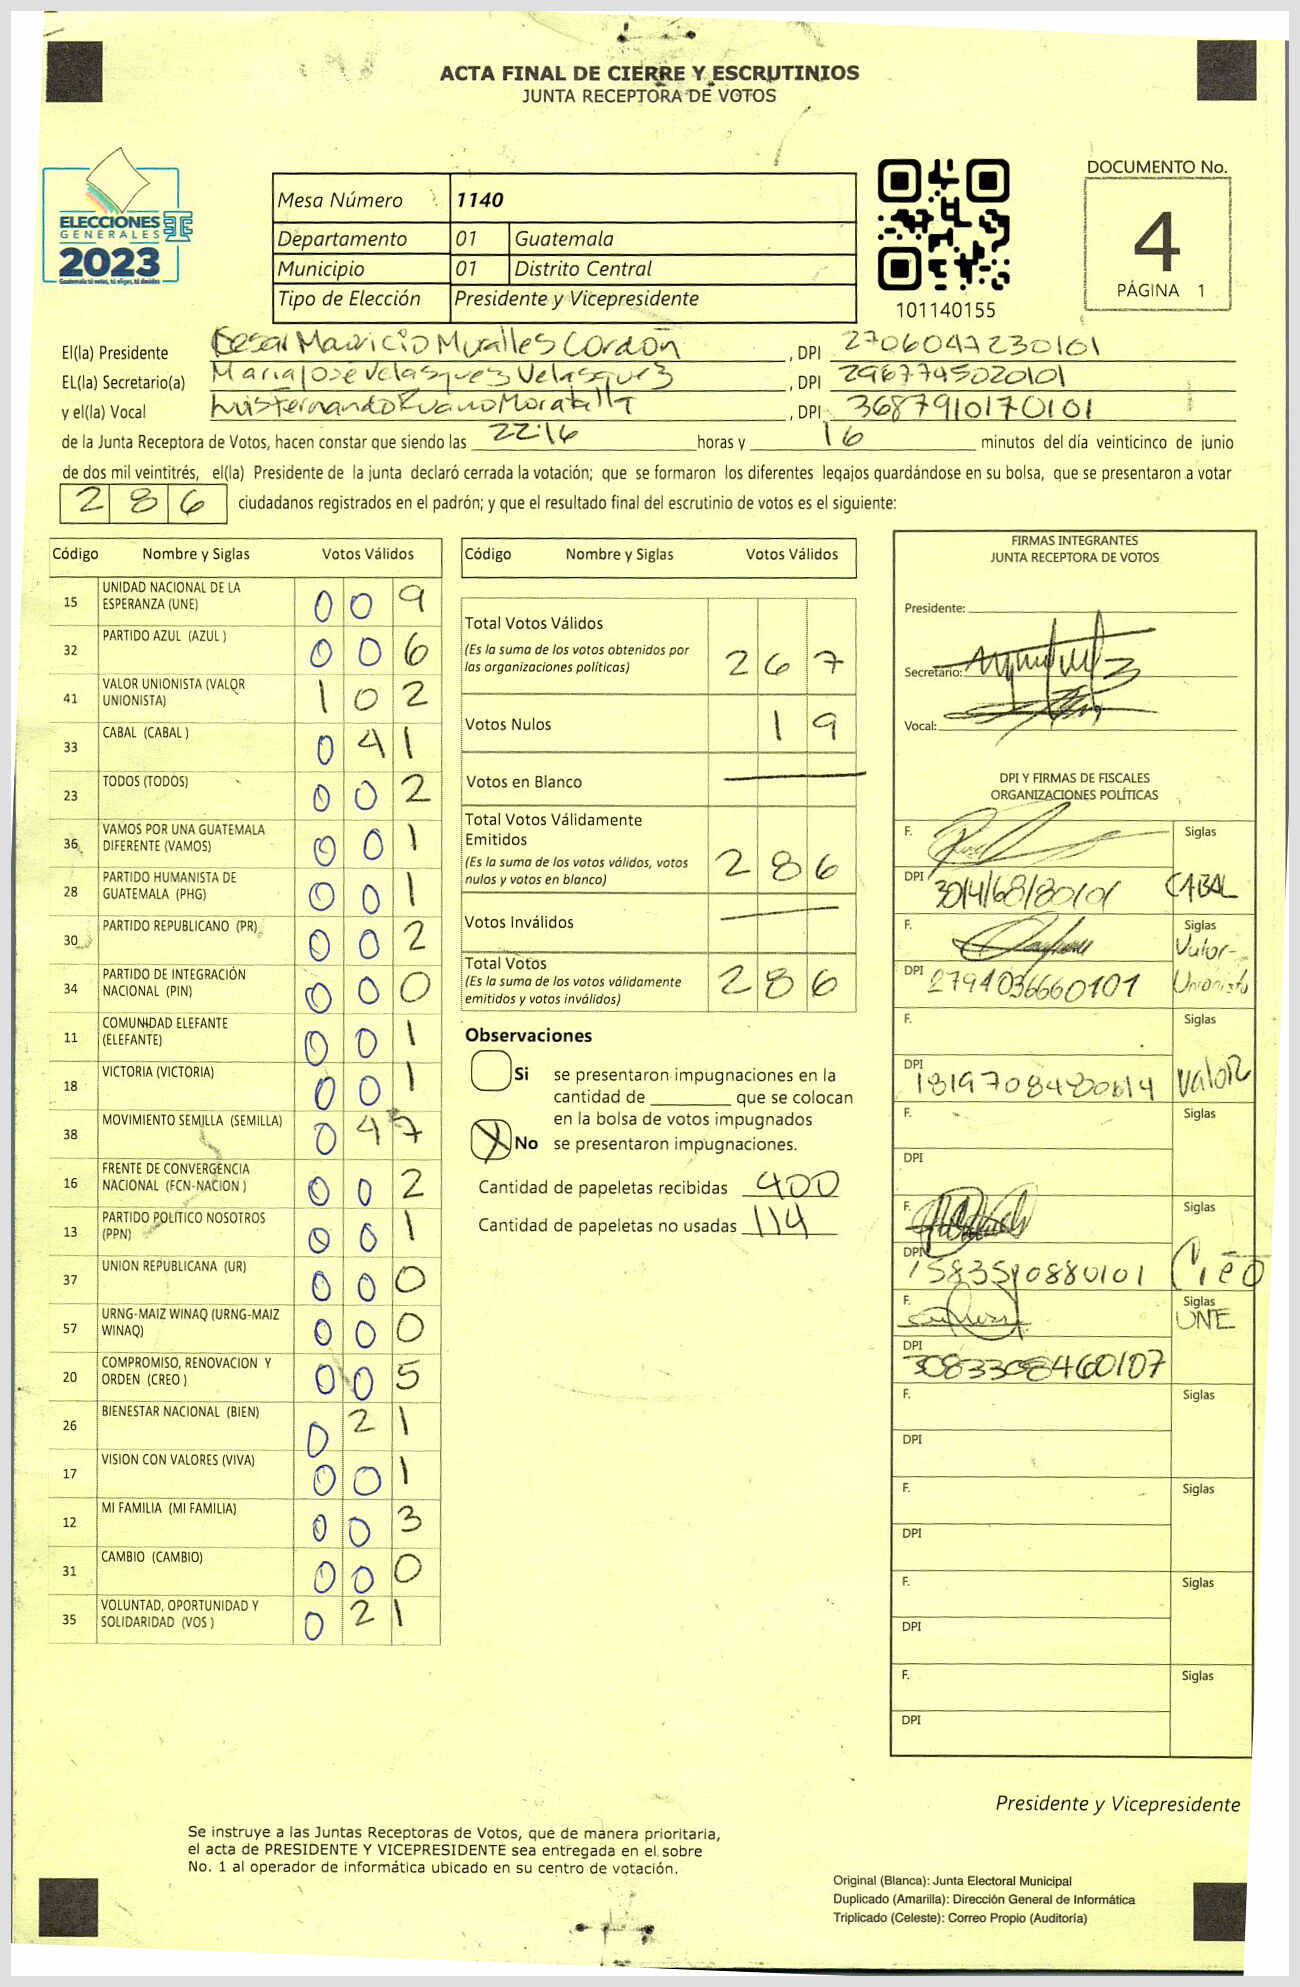 ACTA FINAL DE CIERRE Y ESCRUTINIOS
JUNTA RECEPTORA DE VOTOS
ELECCIONES
GENERALES
2023
Guatemala tú votas, tú eliges, tú decides
Mesa Número 1140
Departamento 01 Guatemala
Municipio 01 Distrito Central
Tipo de Elección Presidente y Vicepresidente
101140155
DOCUMENTO No.
4
PÁGINA 1
El(la) Presidente Cesar Mauricio Muralles Cordón, DPI 2706047230101
EL(la) Secretario(a) Maria Jose Velasquez Velasquez, DPI 2967745020101
y el(la) Vocal Luis Fernando Ruano Morataya, DPI 3687910170101
de la Junta Receptora de Votos, hacen constar que siendo las 22:16 horas y 16 minutos del día veinticinco de junio
de dos mil veintitrés, el(la) Presidente de la junta declaró cerrada la votación; que se formaron los diferentes legajos guardándose en su bolsa, que se presentaron a votar
286 ciudadanos registrados en el padrón; y que el resultado final del escrutinio de votos es el siguiente:
Código Nombre y Siglas Votos Válidos
15 UNIDAD NACIONAL DE LA ESPERANZA (UNE) 009
32 PARTIDO AZUL (AZUL ) 006
41 VALOR UNIONISTA (VALOR UNIONISTA) 102
33 CABAL (CABAL ) 041
23 TODOS (TODOS) 002
36 VAMOS POR UNA GUATEMALA DIFERENTE (VAMOS) 001
28 PARTIDO HUMANISTA DE GUATEMALA (PHG) 001
30 PARTIDO REPUBLICANO (PR) 002
34 PARTIDO DE INTEGRACIÓN NACIONAL (PIN) 000
11 COMUNIDAD ELEFANTE (ELEFANTE) 001
18 VICTORIA (VICTORIA) 001
38 MOVIMIENTO SEMILLA (SEMILLA) 047
16 FRENTE DE CONVERGENCIA NACIONAL (FCN-NACION ) 002
13 PARTIDO POLÍTICO NOSOTROS (PPN) 001
37 UNION REPUBLICANA (UR) 000
57 URNG-MAIZ WINAQ (URNG-MAIZ WINAQ) 000
20 COMPROMISO, RENOVACION Y ORDEN (CREO ) 005
26 BIENESTAR NACIONAL (BIEN) 021
17 VISION CON VALORES (VIVA) 001
12 MI FAMILIA (MI FAMILIA) 003
31 CAMBIO (CAMBIO) 000
35 VOLUNTAD, OPORTUNIDAD Y SOLIDARIDAD (VOS ) 021
Código Nombre y Siglas Votos Válidos
Total Votos Válidos
(Es la suma de los votos obtenidos por
las organizaciones políticas) 267
Votos Nulos 19
Votos en Blanco
Total Votos Válidamente
Emitidos
(Es la suma de los votos válidos, votos
nulos y votos en blanco) 286
Votos Inválidos
Total Votos
(Es la suma de los votos válidamente
emitidos y votos inválidos) 286
Observaciones
Si se presentaron impugnaciones en la
cantidad de ________ que se colocan
en la bolsa de votos impugnados
No se presentaron impugnaciones.
Cantidad de papeletas recibidas 400
Cantidad de papeletas no usadas 114
FIRMAS INTEGRANTES
JUNTA RECEPTORA DE VOTOS
Presidente:
Secretario:
Vocal:
DPI Y FIRMAS DE FISCALES
ORGANIZACIONES POLÍTICAS
F. Siglas
DPI 3014168180101 CABAL
F. Siglas
DPI 2794036660101 Valor-Unionista
F. Siglas
DPI VALOR
F. Siglas
DPI
F. Siglas
DPI
F. Siglas UNE
DPI 3083308460107
F. Siglas
DPI
F. Siglas
DPI
F. Siglas
DPI
F. Siglas
DPI
Presidente y Vicepresidente
Se instruye a las Juntas Receptoras de Votos, que de manera prioritaria,
el acta de PRESIDENTE Y VICEPRESIDENTE sea entregada en el sobre
No. 1 al operador de informática ubicado en su centro de votación.
Original (Blanca): Junta Electoral Municipal
Duplicado (Amarilla): Dirección General de Informática
Triplicado (Celeste): Correo Propio (Auditoría)